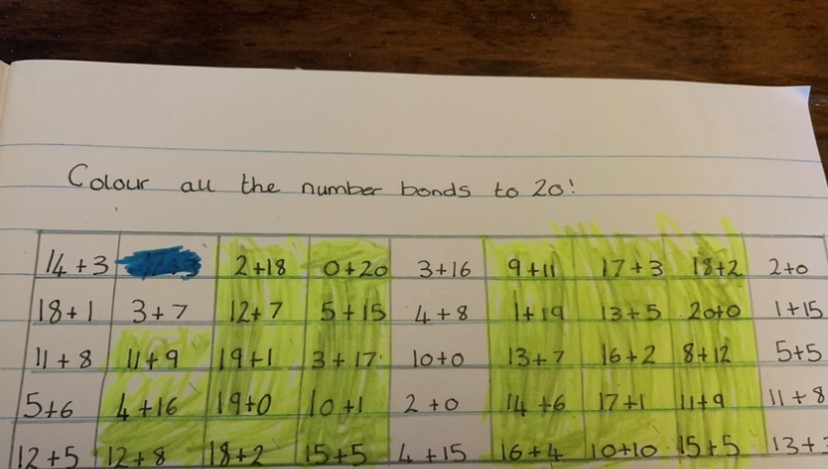 Colour all the number bonds to 20!
14+3 2+18 0+20 3+16 9+11 17+3 18+2 2+0
18+1 3+7 12+7 5+15 4+8 1+19 13+5 20+0 1+15
11+8 11+9 19+1 3+17 10+0 13+7 16+2 8+12 5+5
5+6 4+16 19+0 10+1 2+0 14+6 17+1 11+9 11+8
12+5 12+8 18+2 15+5 4+15 16+4 10+10 15+5 13+